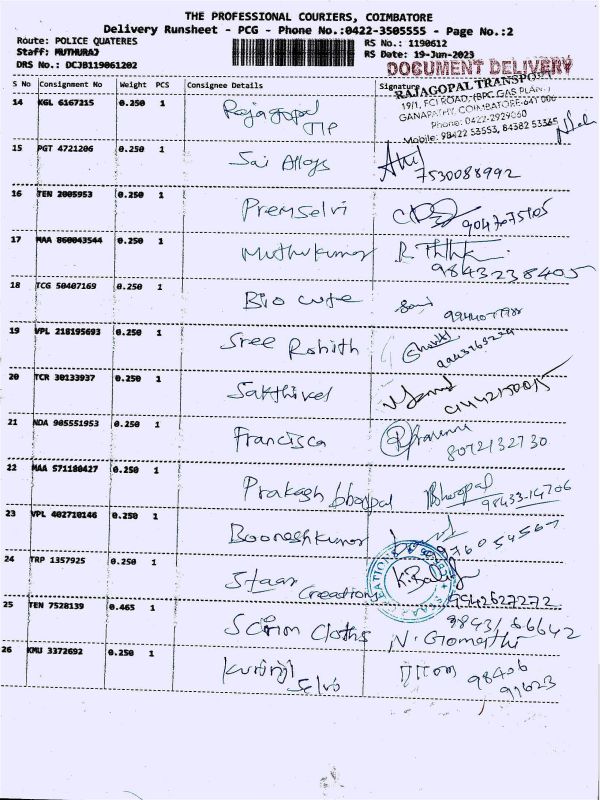 THE PROFESSIONAL COURIERS, COIMBATORE
Delivery Runsheet - PCG - Phone No.:0422-3505555 - Page No.:2
Route: POLICE QUATERES RS No.: 1190612
Staff: MUTHURAJ RS Date: 19-Jun-2023
DRS No.: DCJB119061202 DOCUMENT DELIVERY
S No Consignment No Weight PCS Consignee Details Signature
RAJAGOPAL TRANSPORT
19/1, FCI ROAD, (BPC GAS PLANT)
GANAPATHY, COIMBATORE-641 006
Phone: 0422-2929060
Mobile: 98422 53553, 84382 53365
14 KGL 6167215 0.250 1 Rajagopal
TTP
15 PGT 4721206 0.250 1 Sai Alloys 7530088992
16 TEN 2005953 0.250 1 Premselvi
17 MAA 860043544 0.250 1 Muthukumar 9843238405
18 TCG 50407169 0.250 1 Bio cure
19 VPL 218195693 0.250 1 Sree Rohith
20 TCR 30133937 0.250 1 Sakthivel
21 NDA 905551953 0.250 1 Francisca 8072132730
22 MAA 571180427 0.250 1 Prakash bhoopal Bhoopal 98433-14706
23 VPL 402710146 0.250 1 Booneshkumar
24 TRP 1357925 0.250 1 Staar Creations K. Balaji 9942627272
25 TEN 7528139 0.465 1 Cloths N. Gomathi 98431 66642
26 KMU 3372692 0.250 1 Kurinji
Selvo 98406
91623